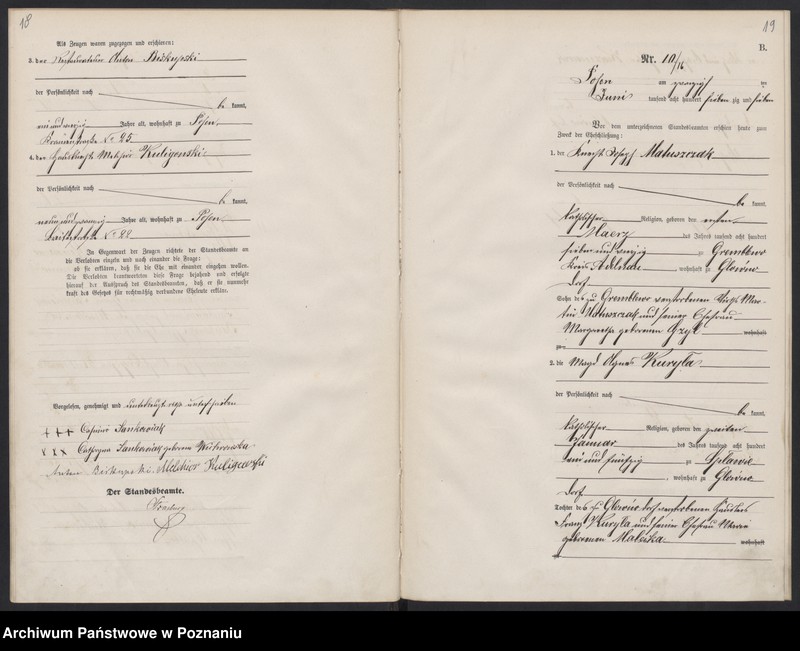 18
Als Zeugen waren zugezogen und erschienen:
3. der Restaurateur Anton Biskupski
der Persönlichkeit nach
be kannt,
Jahre alt, wohnhaft zu Posen
No 25
4. der Melchior Kuligowski
der Persönlichkeit nach
be kannt,
neunundzwanzig Jahre alt, wohnhaft zu Posen
No 22
In Gegenwart der Zeugen richtete der Standesbeamte an
die Verlobten einzeln und nach einander die Frage:
ob sie erklären, daß sie die Ehe mit einander eingehen wollen.
Die Verlobten beantworteten diese Frage bejahend und erfolgte
hierauf der Ausspruch des Standesbeamten, daß er sie nunmehr
kraft des Gesetzes für rechtmäßig verbundene Eheleute erkläre.
Vorgelesen, genehmigt und unterkreuzt resp. unterschrieben
+++ Casimir Jankowiak
xxx Jankowiak geborene
Anton Biskupski Melchior Kuligowski
Der Standesbeamte.
19
B.
Nr. 10/16
Posen am zwanzigsten
Juni tausend acht hundert sieben zig und sieben
Vor dem unterzeichneten Standesbeamten erschien heute zum
Zweck der Eheschließung:
1. der Knecht Joseph Matuszczak
der Persönlichkeit nach
be kannt,
katholischer Religion, geboren den ersten
Maerz des Jahres tausend acht hundert
sieben und vierzig zu
Kreis Adelnau, wohnhaft zu Glowno
dorf
Sohn des zu verstorbenen Mar-
tin Matuszczak und seiner Ehefrau
Margaretha geborenen
wohnhaft
zu
2. die Magd Agnes Kuryla
der Persönlichkeit nach
be kannt,
katholischer Religion, geboren den zweiten
Januar des Jahres tausend acht hundert
und fünfzig zu Splawie
, wohnhaft zu Glowno
dorf
Tochter des zu Glowno dorf verstorbenen
Franz Kuryla und seiner Ehefrau Maria
geborenen Malecka wohnhaft
Archiwum Państwowe w Poznaniu